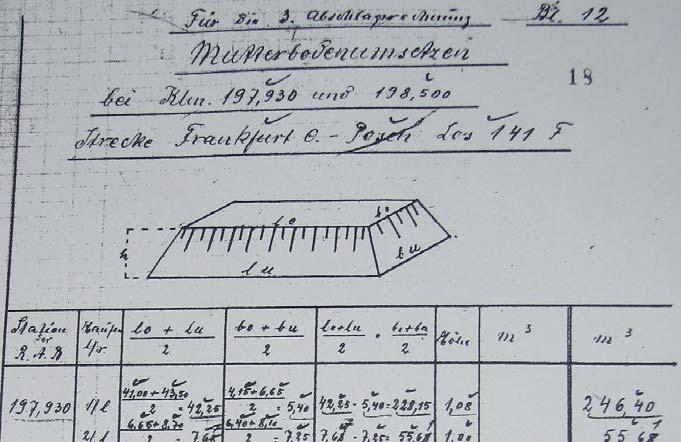 Für die 3. Abschlagsrechnung Bl. 12
Mutterbodenumsetzen
18
bei Klm. 197,930 und 198,500
Strecke Frankfurt O. - Posen Los 141 F
lo bo
h
lu bu
Station der R.A.B Haufen Nr. lo + lu / 2 bo + bu / 2 lo+lu / 2 · bo+bu / 2 Höhe m³ m³
197,930 1/l 41,00+43,50 / 2 = 42,25 4,15+6,65 / 2 = 5,40 42,25 · 5,40 = 228,15 1,08 246,40
2/l 6,65+8,70 / 2 = 7,68 6,40+8,10 / 2 = 7,25 7,68 · 7,25 = 55,68 1,00 55,68